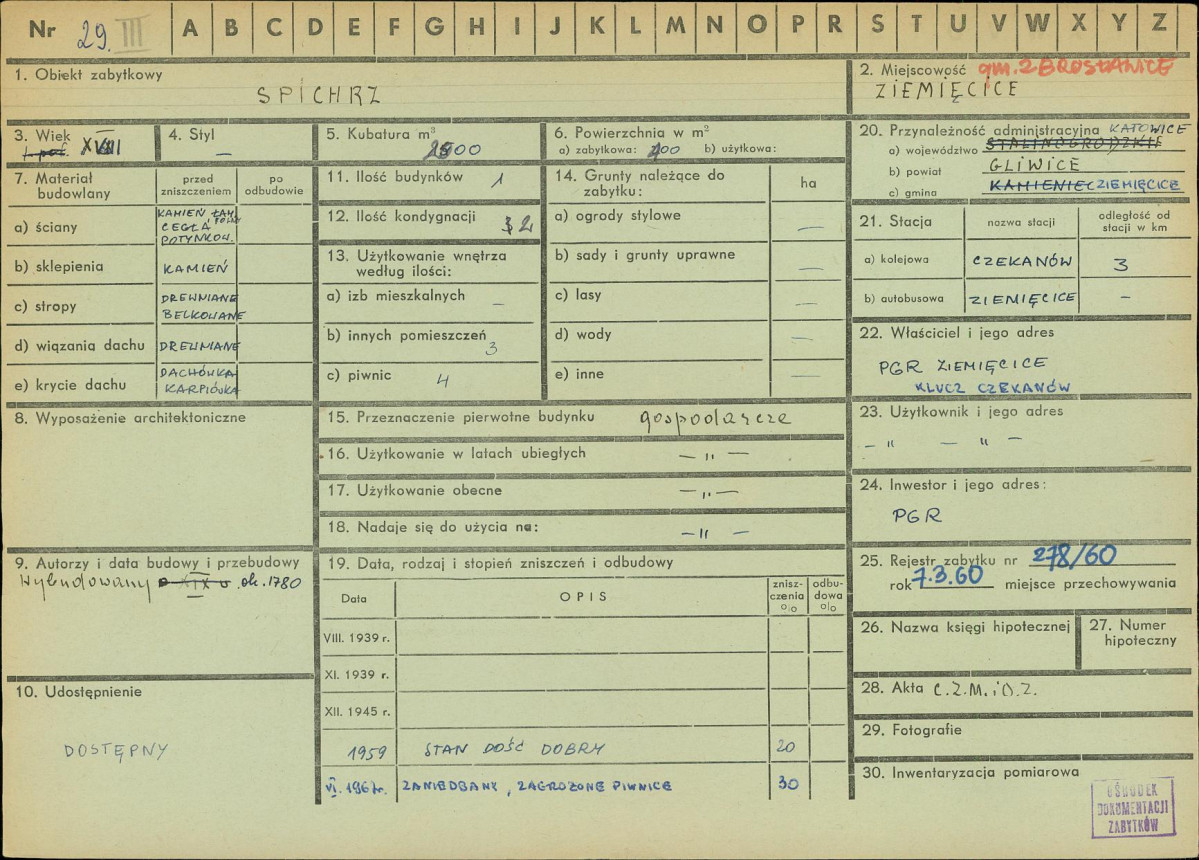 Nr 29. III A B C D E F G H I J K L M N O P R S T U V W X Y Z
1. Obiekt zabytkowy
SPICHRZ
2. Miejscowość gm. ZBROSŁAWICE
ZIEMIĘCICE
3. Wiek
XVIII
4. Styl
—
5. Kubatura m³
00
6. Powierzchnia w m²
a) zabytkowa: 00 b) użytkowa:
20. Przynależność administracyjna KATOWICE
a) województwo STALINOGRODZKIE
b) powiat GLIWICE
c) gmina KAMIENIEC ZIEMIĘCICE
7. Materiał budowlany
przed zniszczeniem
po odbudowie
a) ściany
KAMIEŃ ŁAM.
CEGŁA
POTYNKOW.
b) sklepienia KAMIEŃ
c) stropy
DREWNIANE
BELKOWANE
d) wiązania dachu DREWNIANE
e) krycie dachu
DACHÓWKA
KARPIÓWKA
8. Wyposażenie architektoniczne
9. Autorzy i data budowy i przebudowy
Wybudowany XIX w ok. 1780
10. Udostępnienie
DOSTĘPNY
11. Ilość budynków 1
12. Ilość kondygnacji 3 2
13. Użytkowanie wnętrza
według ilości:
a) izb mieszkalnych —
b) innych pomieszczeń
3
c) piwnic 4
14. Grunty należące do
zabytku:
ha
a) ogrody stylowe —
b) sady i grunty uprawne —
c) lasy —
d) wody —
e) inne —
15. Przeznaczenie pierwotne budynku gospodarcze
16. Użytkowanie w latach ubiegłych — " —
17. Użytkowanie obecne — " —
18. Nadaje się do użycia na: — " —
19. Data, rodzaj i stopień zniszczeń i odbudowy
Data
OPIS
znisz-
czenia
o|o
odbu-
dowa
o|o
VIII. 1939 r.
XI. 1939 r.
XII. 1945 r.
1959 STAN DOŚĆ DOBRY 20
VI. 1967r. ZANIEDBANY, ZAGROŻONE PIWNICE 30
21. Stacja
nazwa stacji
odległość od
stacji w km
a) kolejowa CZEKANÓW 3
b) autobusowa ZIEMIĘCICE —
22. Właściciel i jego adres
PGR ZIEMIĘCICE
KLUCZ CZEKANÓW
23. Użytkownik i jego adres
— " — " —
24. Inwestor i jego adres:
PGR
25. Rejestr zabytku nr 278/60
rok 7.3.60 miejsce przechowywania
26. Nazwa księgi hipotecznej
27. Numer
hipoteczny
28. Akta C.Z.M.iO.Z.
29. Fotografie
30. Inwentaryzacja pomiarowa
OŚRODEK
DOKUMENTACJI
ZABYTKÓW